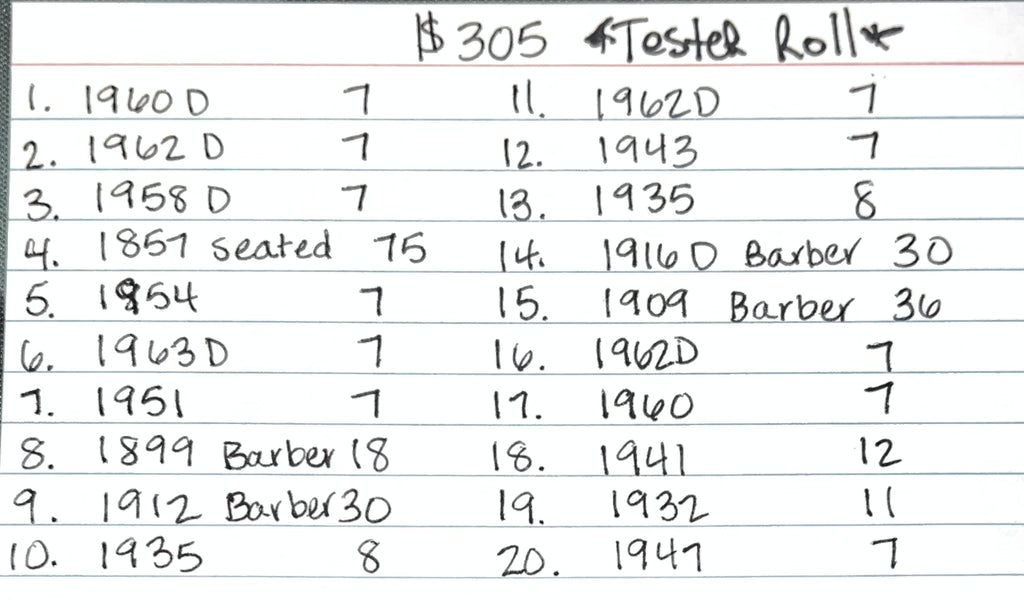 $305 *Tester Roll*
1. 1960 D 7 11. 1962D 7
2. 1962 D 7 12. 1943 7
3. 1958 D 7 13. 1935 8
4. 1857 seated 75 14. 1916 D Barber 30
5. 1954 7 15. 1909 Barber 36
6. 1963 D 7 16. 1962D 7
7. 1951 7 17. 1960 7
8. 1899 Barber 18 18. 1941 12
9. 1912 Barber 30 19. 1932 11
10. 1935 8 20. 1947 7